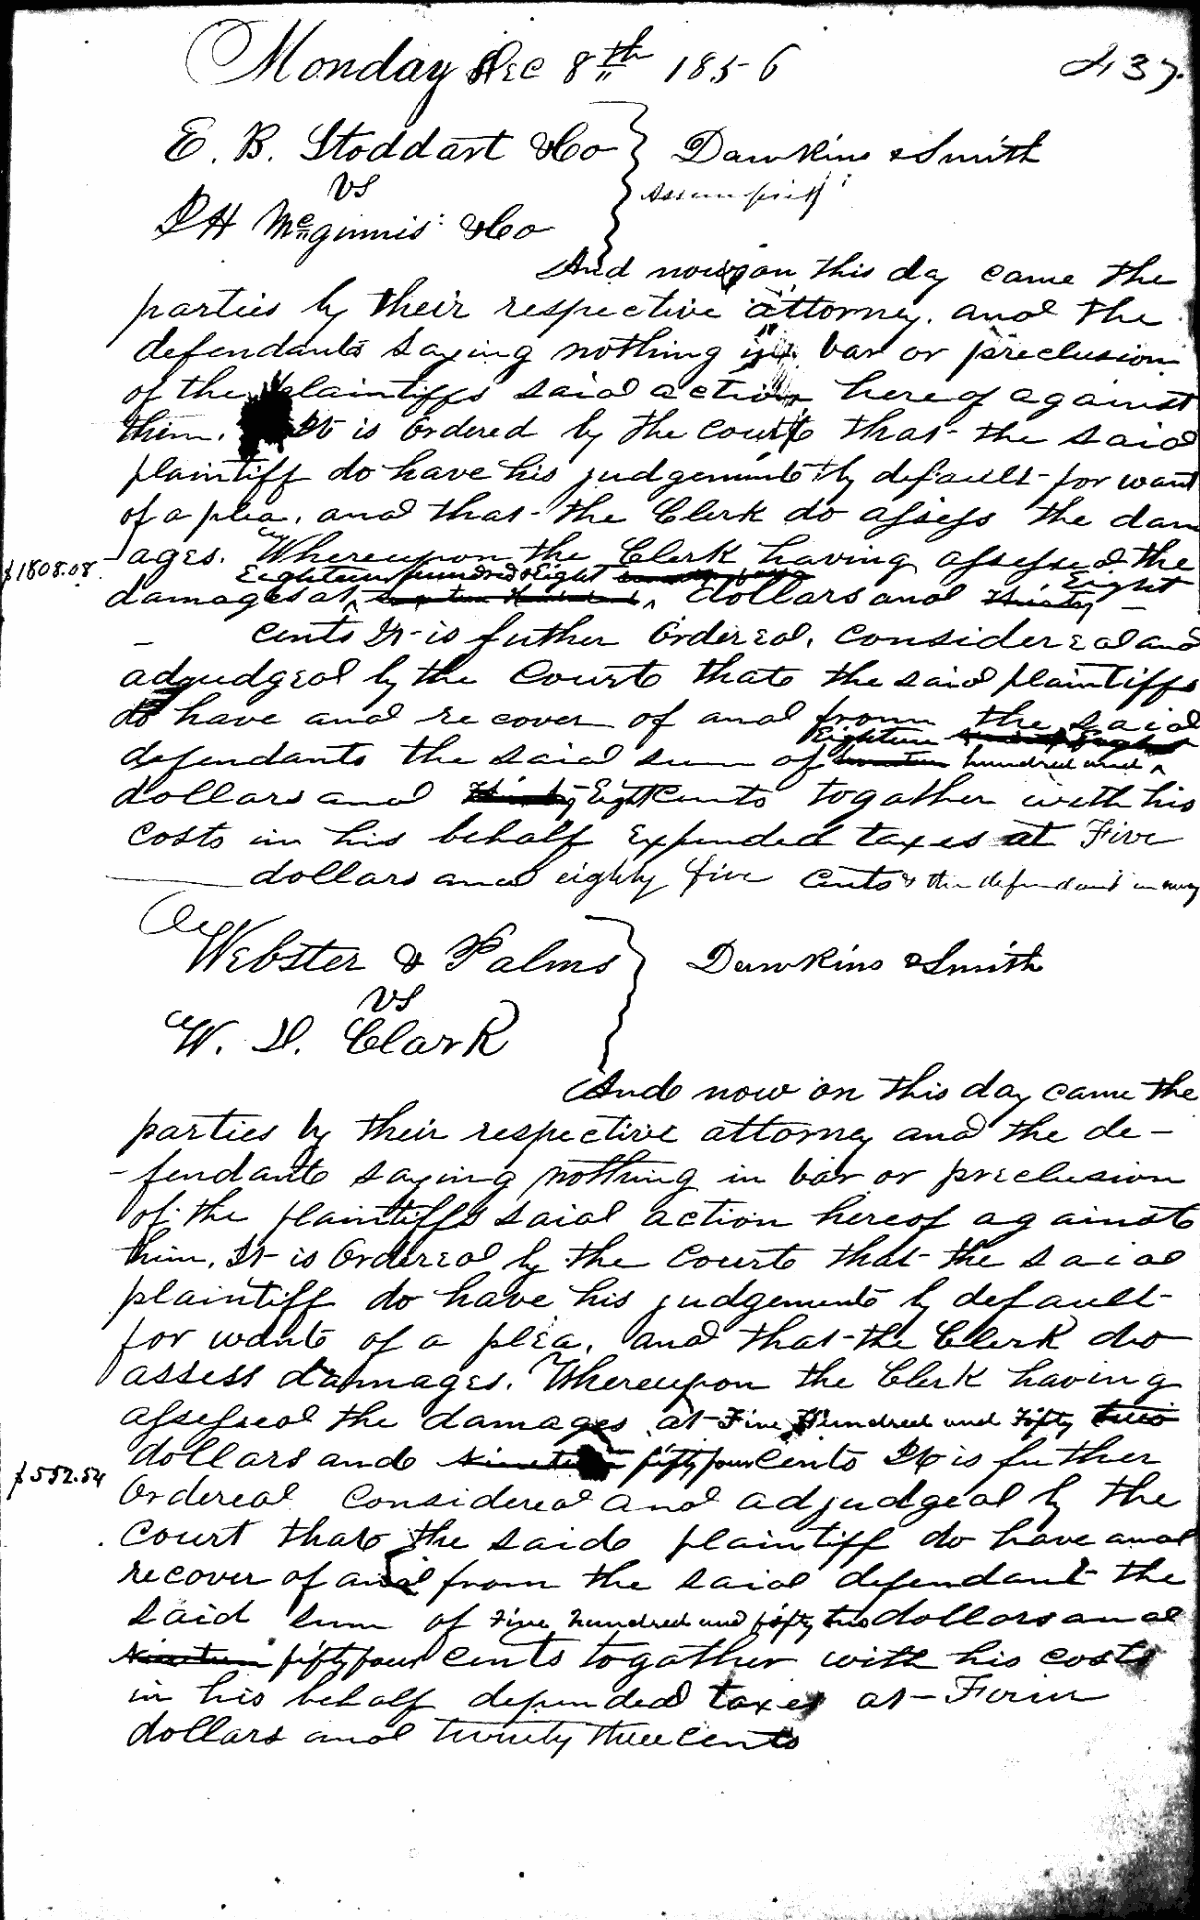 Monday Dec 8th 1856 437.
E. B. Stoddart & Co Dawkins & Smith
vs Assumpsit
McGinnis & Co
And now on this day came the
parties by their respective attorney. and the
defendants saying nothing in bar or preclusion
of the plaintiffs said action hereof against
them. It is Ordered by the Court that the said
plaintiff do have his judgement by default for want
of a plea, and that the Clerk do assess the dam
ages. Whereupon the Clerk having assessed the
$1808.08
Eighteen hundred & Eight Eight
damages at dollars and Thirty
cents It is futher Ordered, considered and
adjudged by the Court that the said plaintiffs
do have and recover of and from the said
Eighteen
defendants the said sum of hundred and
dollars and Thirty Eight Cents togather with his
costs in his behalf Expended taxes at Five
dollars and eighty five Cents & the defendant in mercy
Webster & Palms Dawkins & Smith
vs
W. D. Clark
And now on this day came the
parties by their respective attorney and the de-
-fendant saying nothing in bar or preclusion
of the plaintiffs said action hereof against
them. It is Ordered by the Court that the said
plaintiff do have his judgement by default
for want of a plea, and that the Clerk do
assess damages. Whereupon the Clerk having
assessed the damages at Five Hundred and Fifty two
dollars and Nineteen fifty four Cents It is futher
$552.54
Ordered Considered and adjudged by the
Court that the said plaintiff do have and
recover of and from the said defendant the
said sum of Five hundred and fifty two dollars and
Nineteen fifty four Cents togather with his costs
in his behalf depended taxes at Four
dollars and twenty three Cents